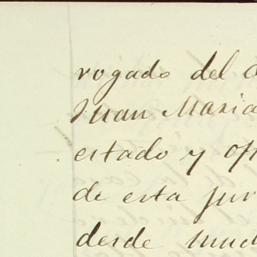 rogado del
Juan Maria
estado y
de esta
desde